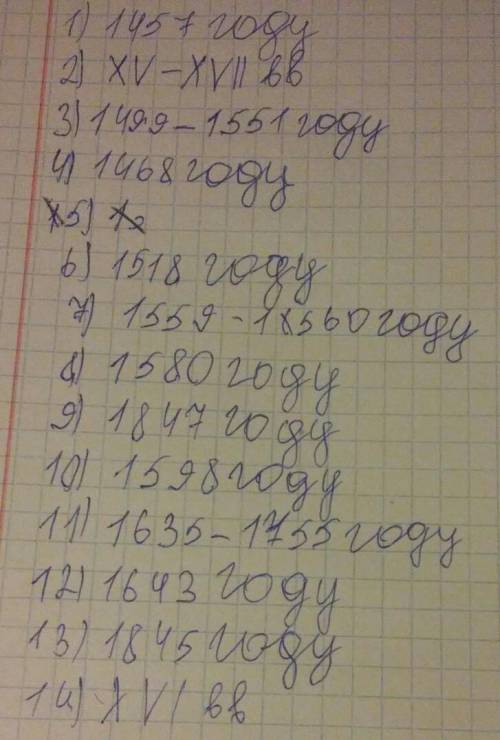 1) 1457 году
2) XV-XVII вв
3) 1499-1551 году
4) 1468 году
5)
6) 1518 году
7) 1559-18560 году
8) 1580 году
9) 1847 году
10) 1598 году
11) 1635-1755 году
12) 1643 году
13) 1845 году
14) XVI вв